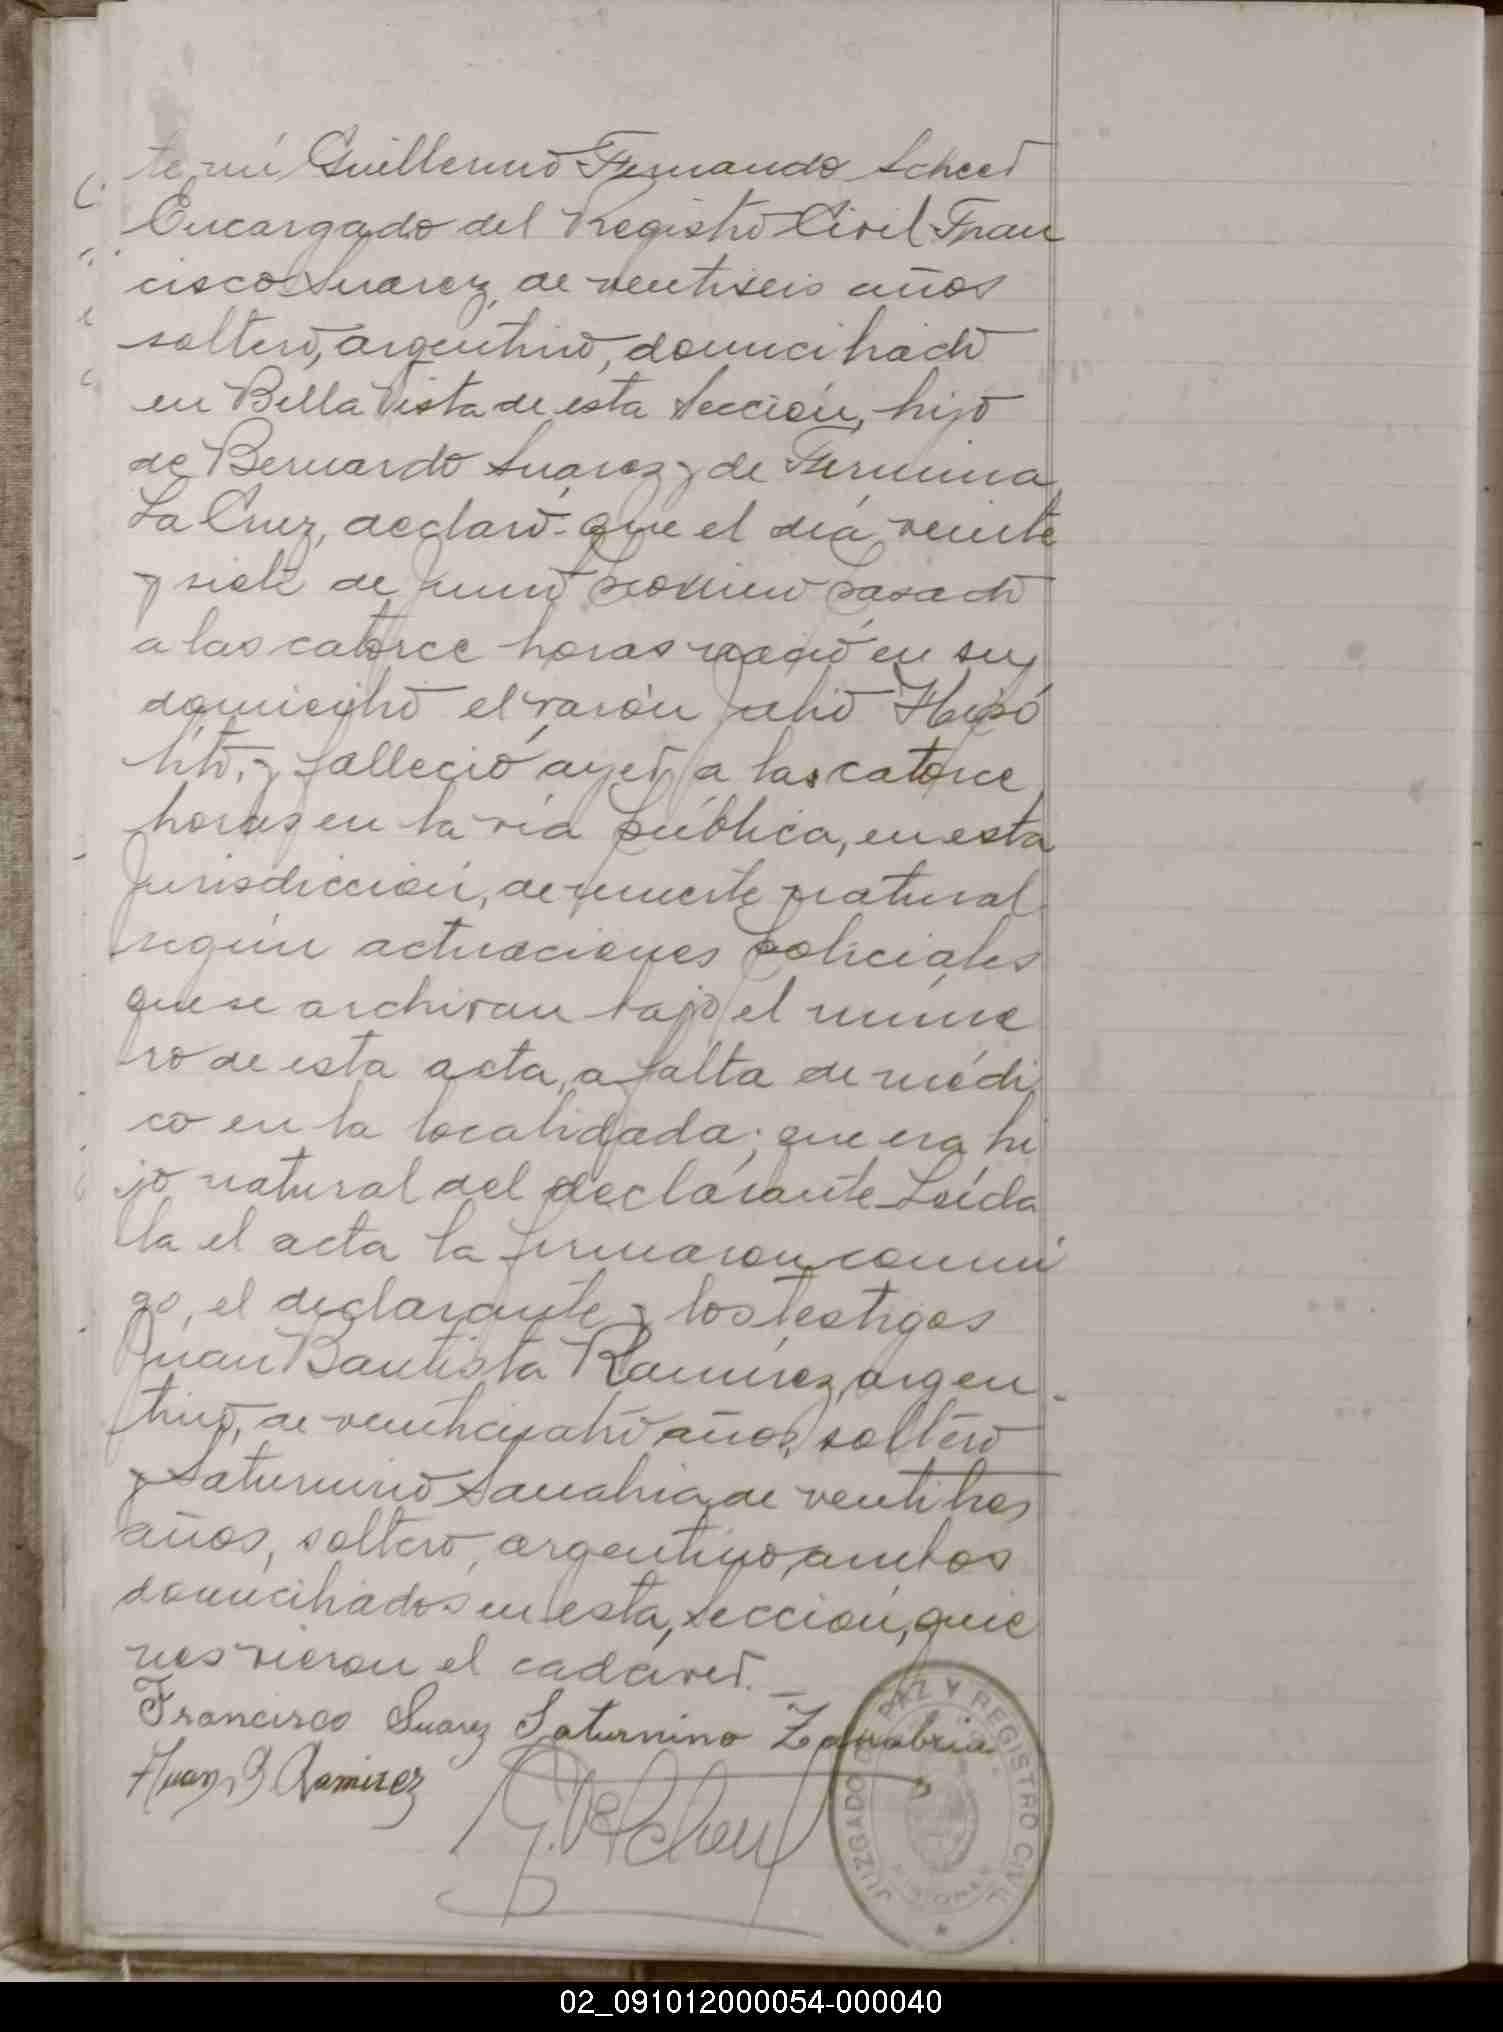 te mí Guillermo Fernando Scheer
Encargado del Registro Civil Fran
cisco Suarez, de ventiseis años
soltero, argentino, domiciliado
en Bella Vista de esta Sección, hijo
de Bernardo Suarez y de Fermina
La Cruz, declaró: que el día veinte
y siete de Junio proximo pasado
a las catorce horas nació en su
domicilio el varón Julio Hipó
lito, y falleció ayer, a las catorce
horas en la vía pública, en esta
Jurisdiccion, de muerte natural
según actuaciones policiales
que se archivan bajo el núme
ro de esta acta, a falta de médi
co en la localidada; que era hi
jo natural del declarante Leída
la el acta la firmaron conmi
go, el declarante y los testigos
Juan Bautista Ramírez, argen-
tino, de venticuatro años, soltero
y Saturnino Sanabria, de ventitres
años, soltero, argentino, ambos
domiciliados en esta, sección, quie
nes vieron el cadáver.
Francisco Suarez Saturnino Zanabria
Juan B Ramirez
JUZGADO DE PAZ Y REGISTRO CIVIL
02_091012000054-000040